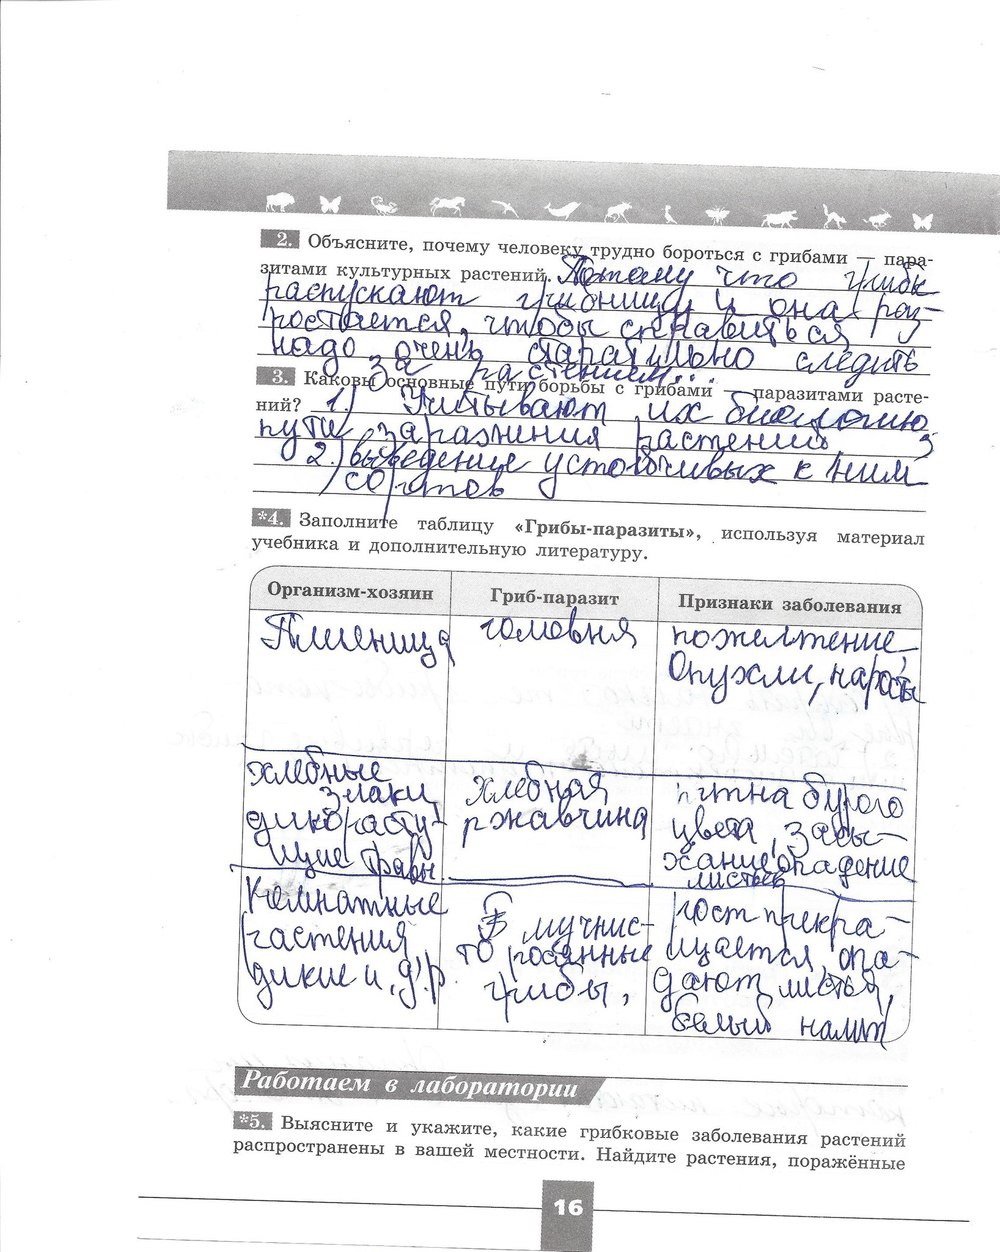 2. Объясните, почему человеку трудно бороться с грибами — пара-
зитами культурных растений. Потому что грибы
распускают грибницу и она раз-
ростается, чтобы справиться
надо очень старательно следить
за растением...
3. Каковы основные пути борьбы с грибами — паразитами расте-
ний? 1) Учитывают их биологию
пути заражения растений
2) выведение устойчивых к ним
сортов
*4. Заполните таблицу «Грибы-паразиты», используя материал
учебника и дополнительную литературу.
Организм-хозяин Гриб-паразит Признаки заболевания
Пшеница головня пожелтение
Опухли, наросты
хлебные
злаки,
дикорасту-
щие травы
хлебная
ржавчина
пятна бурого
цвета, засы-
хание, опадение
листьев
Комнатные
растения
дикие и др.
мучнис-
то росянные
грибы,
рост прекра-
щается, опа-
дают листья,
белый налёт
Работаем в лаборатории
*5. Выясните и укажите, какие грибковые заболевания растений
распространены в вашей местности. Найдите растения, поражённые
16